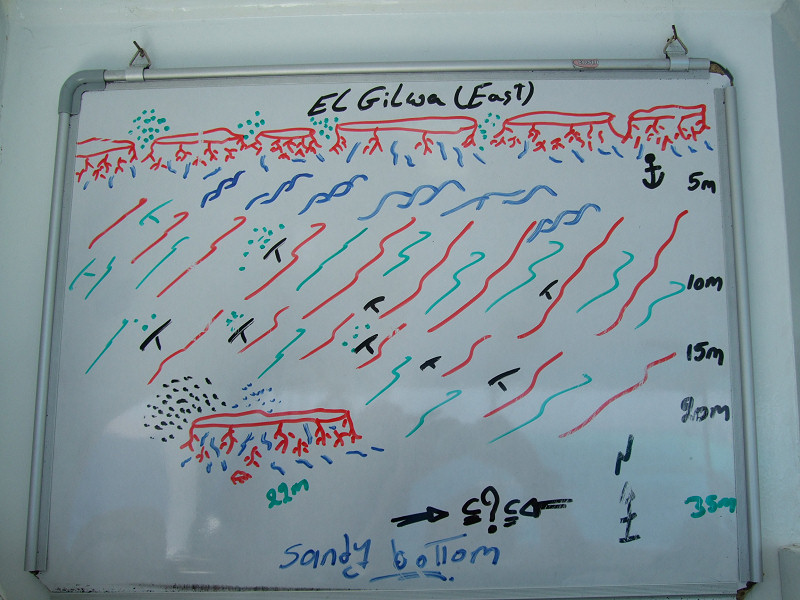 El Gilwa (East)
5m
10m
15m
20m
22m
N
35m
?
sandy bottom